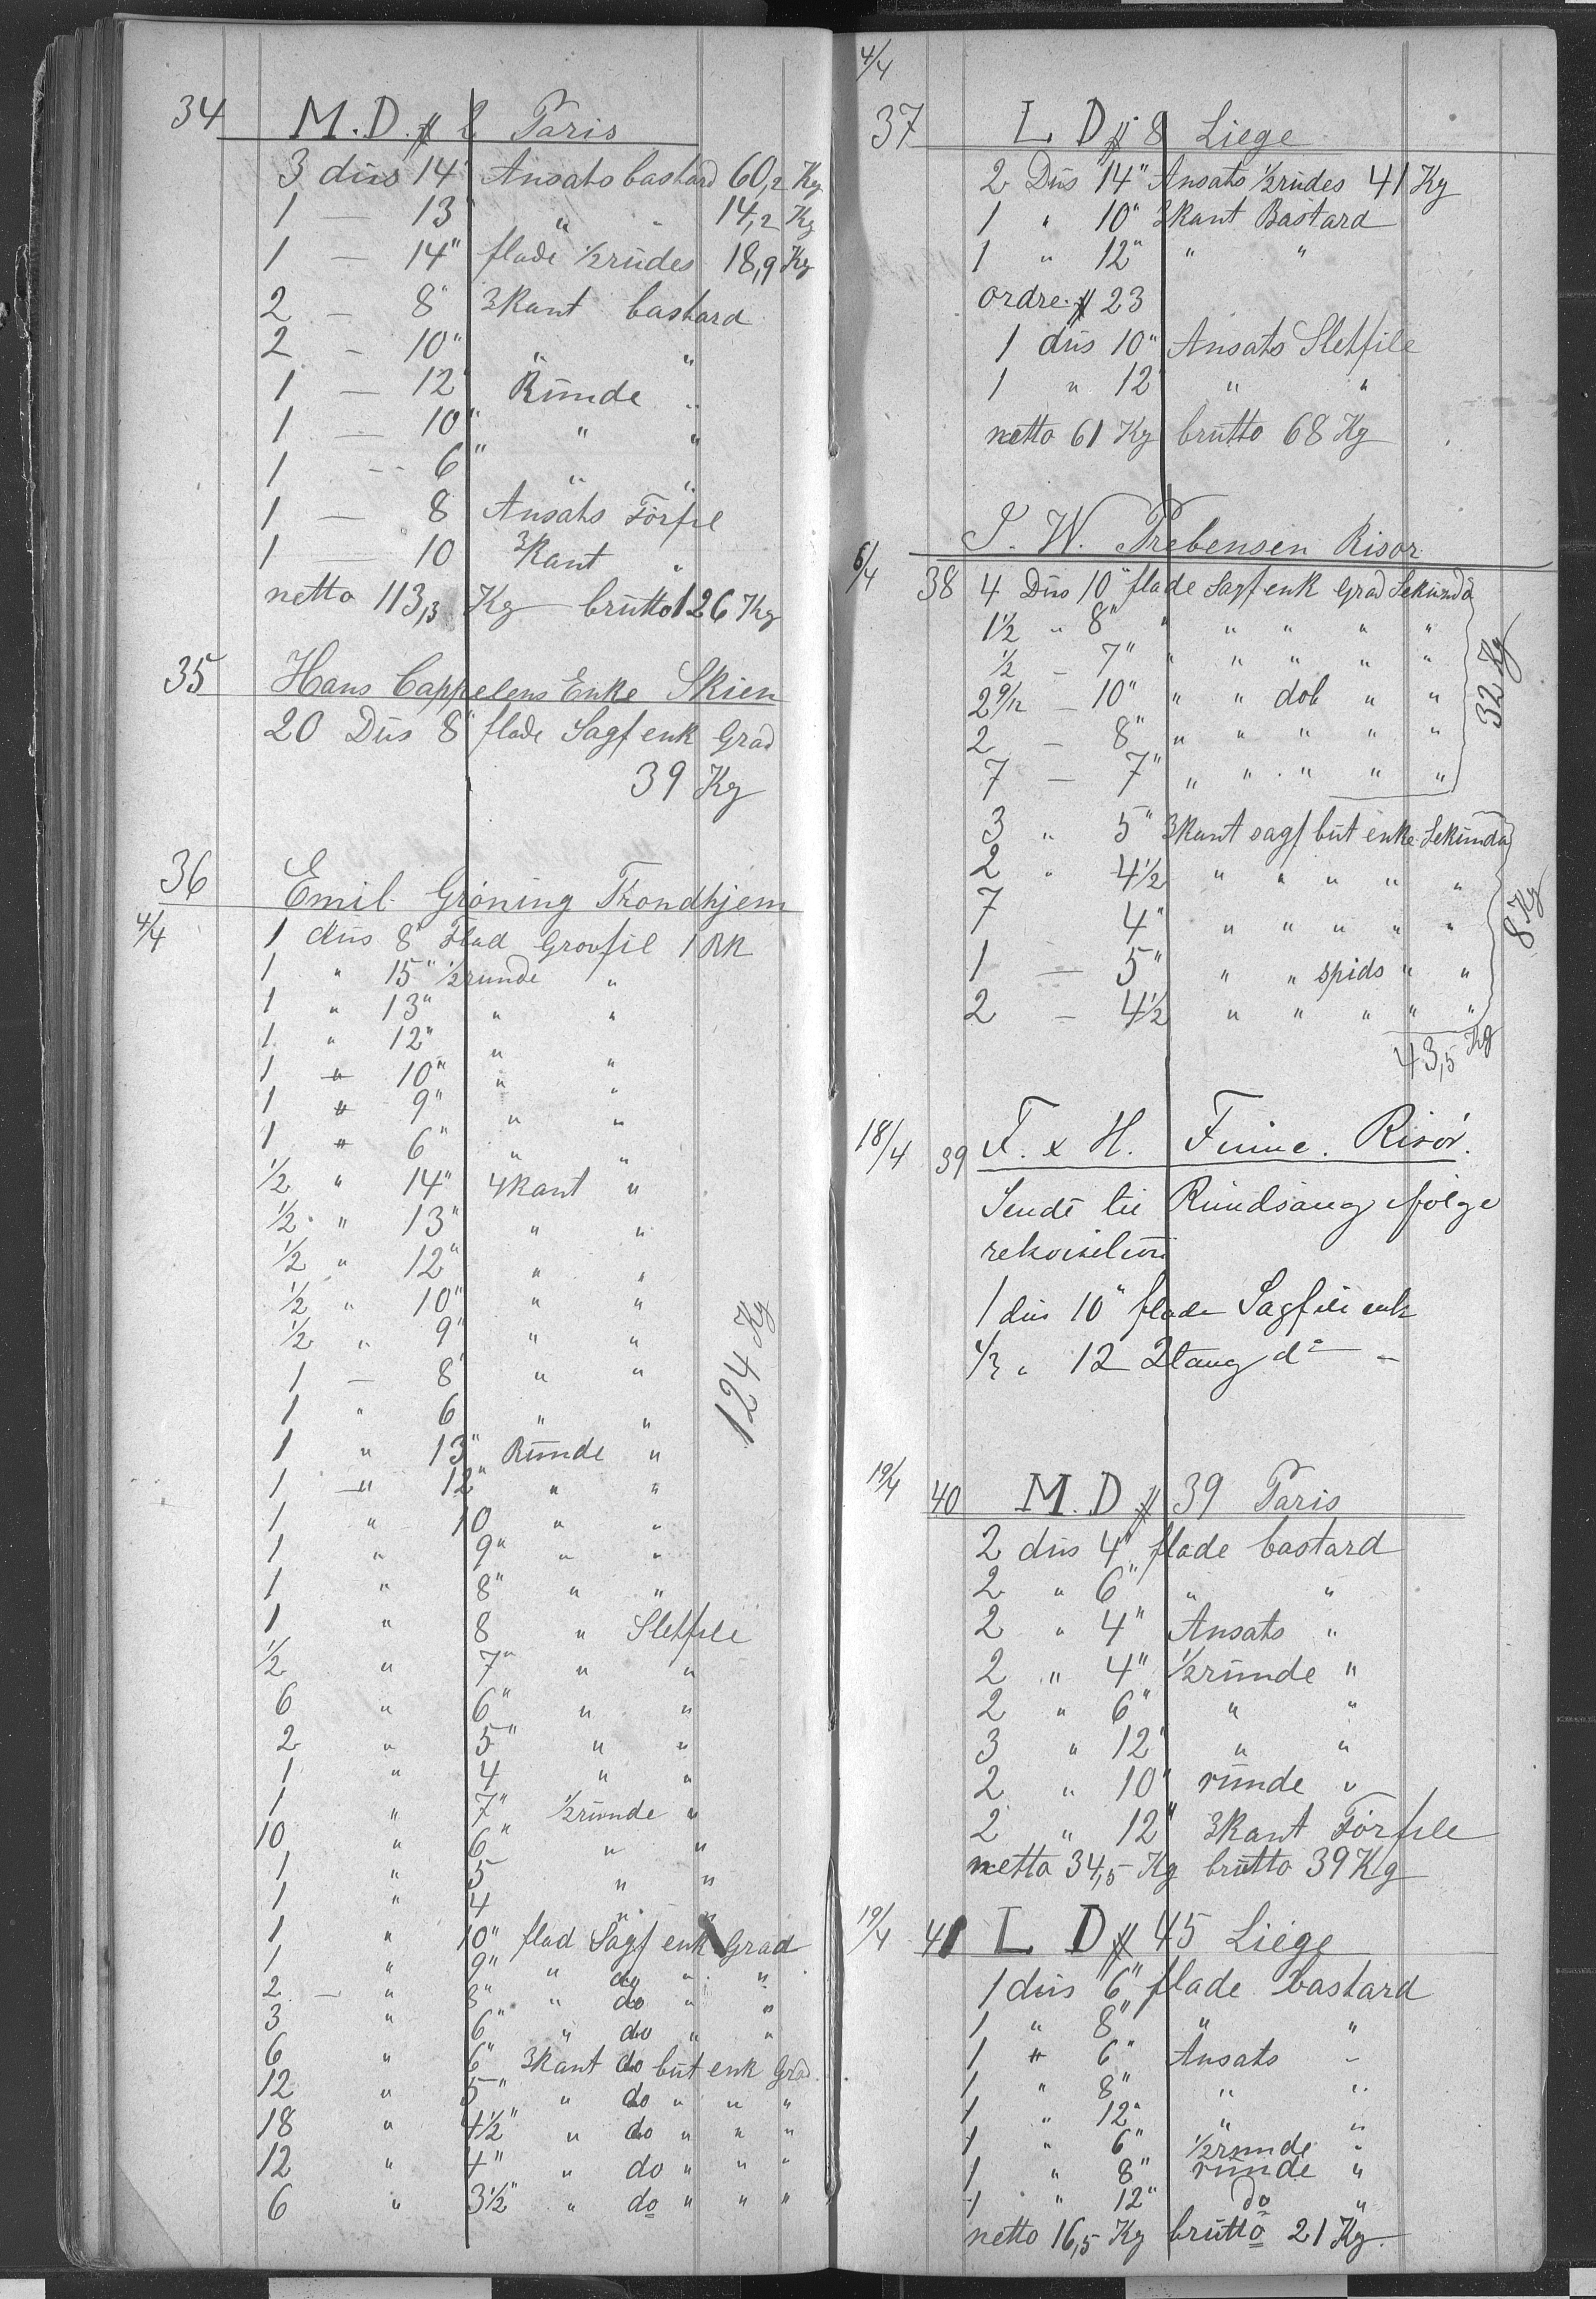 34 M.D. # 2 Paris
3 dus 14" Ansats bastard 60,2 Kg
1 — 13" " " 14,2 Kg
1 — 14" flade ½ rudes 18,9 Kg
2 — 8" 3kant bastard
2 - 10" " "
1 — 12" Runde "
1 — 10" " "
1 -- 6" " "
1 — 8 Ansats Förfil
1 — 10 3kant "
netto 113,3 Kg brutto 126 Kg
35 Hans Cappelens Enke Skien
20 Dus 8" flade Sagf enk Grad
39 Kg
36 Emil Gröning Trondhjem
4/4 1 dus 8" Flad Grovfil 1 RK
1 " 15" ½ runde "
1 " 13" " "
1 " 12" " "
1 " 10" " "
1 " 9" " "
1 " 6" " "
½ " 14" 4kant "
½ " 13" " "
½ " 12" " "
½ " 10" " "
½ " 9" " "
1 — 8" " "
1 " 6 " "
124 Kg
1 " 13" Runde "
1 " 12" " "
1 " 10 " "
1 " 9" " "
1 " 8" " "
1 " 8 " Sletfile
½ " 7" " "
6 " 6" " "
2 " 5" " "
1 " 4 " "
1 " 7" ½ runde "
10 " 6" " "
1 " 5 " "
1 " 4 " "
1 " 10" flad Sagf enk Grad
1 " 9" " do " "
2 — " 8" " do " "
3 " 6" " do " "
6 " 6" 3kant do but enk Grad
12 " 5" " do " " "
18 " 4½" " do " " "
12 " 4" " do " " "
6 " 3½" " do " " "
4/4
37 L D # 8 Liege
2 Dus 14" Ansats ½ rudes 41 Kg
1 " 10" 3kant Bastard
1 " 12" " "
ordre # 23
1 dus 10" Ansats Sletfile
1 " 12" " "
netto 61 Kg brutto 68 Kg
6/4 S. W. Prebensen Risor
38 4 Dus 10" flade Sagf enk Grad Sekunda
1½ " 8" " " " " "
½ — 7" " " " " "
2 9/12 — 10" " " dob " "
2 — 8" " " " " "
7 — 7" " " " " "
32 Kg
3 " 5" 3kant sagf but enke Sekunda
2 " 4½ " " " " "
7 4" " " " " "
1 — 5" " " spids " "
2 — 4½ " " " " "
8 Kg
43,5 Kg
18/4 39 F. x H. Finne. Risör.
Sendt til Rundsaug ifölge
rekvisition
1 dus 10" flade Sagfile enk
" 12 do —
19/4 40 M.D # 39 Paris
2 dus 4" flade bastard
2 " 6" " "
2 " 4" Ansats "
2 " 4" ½ runde "
2 " 6" " "
3 " 12" " "
2 " 10" runde "
2 " 12" 3kant Förfile
netto 34,5 Kg brutto 39 Kg
19/4 41 L D # 45 Liege
1 dus 6" flade bastard
1 " 8" " "
1 " 6" Ansats "
1 " 8" " "
1 " 12" " "
1 " 6" ½ runde "
1 " 8" runde "
1 " 12" do "
netto 16,5 Kg brutto 21 Kg.